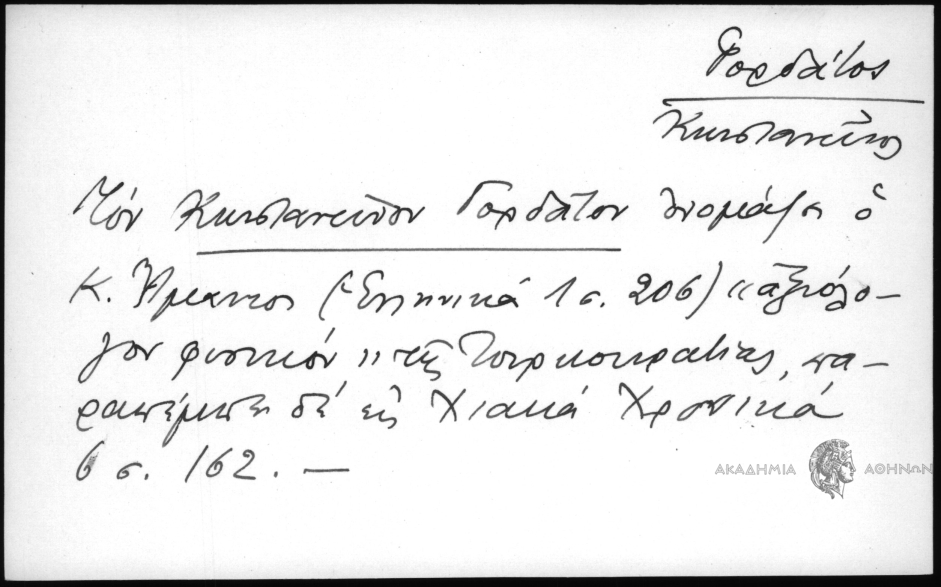 Γορδᾶτος
Κωνσταντῖνος
Τόν Κωνσταντῖνον Γορδᾶτον ὀνομάζει ὁ
Κ. Ἄμαντος (Ἑλληνικά 1 σ. 206) "ἀξιόλο-
γον φυσικόν" τῆς Τουρκοκρατίας, πα-
ραπέμπει δέ εἰς Χιακά Χρονικά
6 σ. 162. —
ΑΚΑΔΗΜΙΑ ΑΘΗΝΩΝ